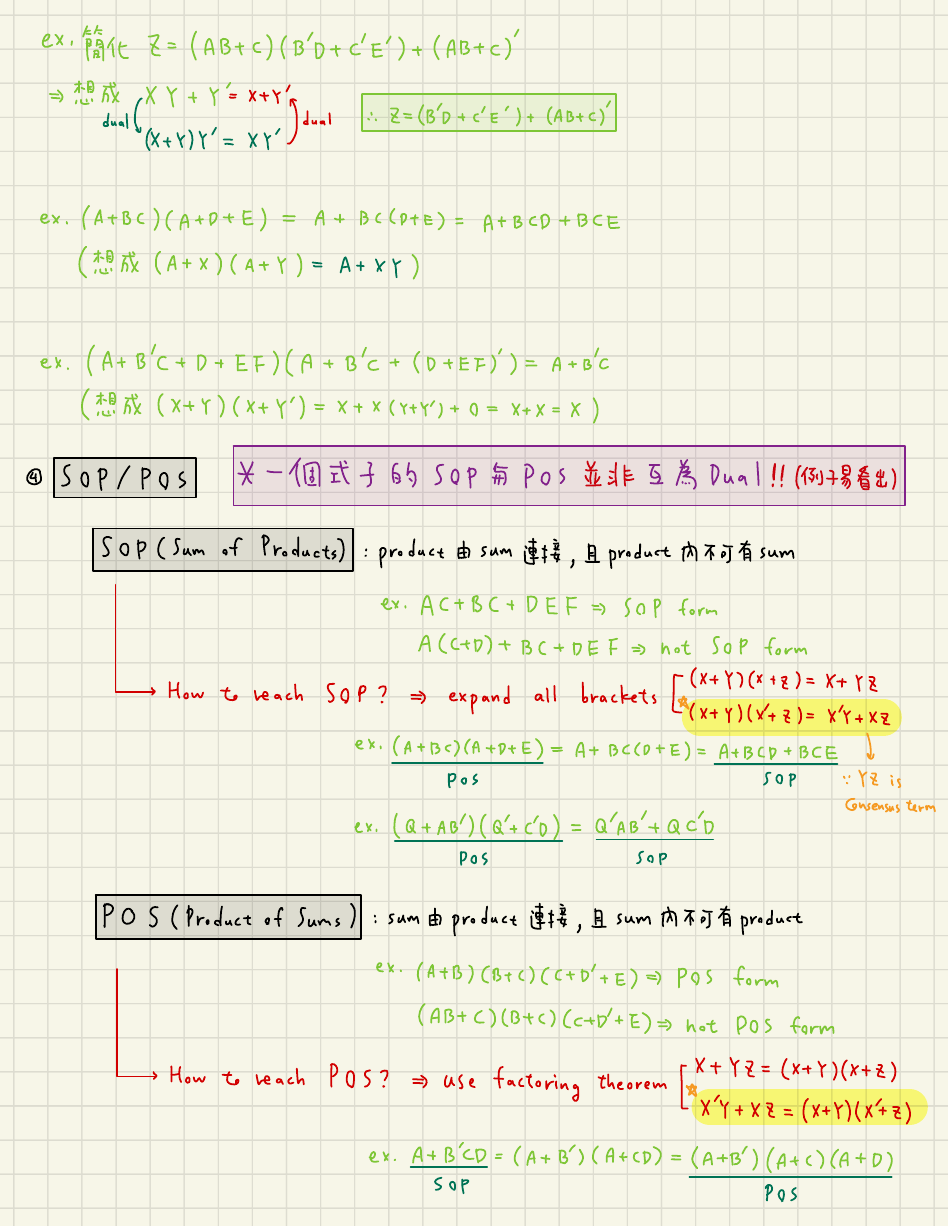 ex. 簡化 Z = (AB+C)(B'D+C'E') + (AB+C)'
⇒ 想成 XY + Y' = X+Y'
dual (X+Y)Y' = XY' dual
∴ Z = (B'D + C'E') + (AB+C)'
ex. (A+BC)(A+D+E) = A + BC(D+E) = A+BCD+BCE
(想成 (A+X)(A+Y) = A+XY)
ex. (A+B'C+D+EF)(A+B'C+(D+EF)') = A+B'C
(想成 (X+Y)(X+Y') = X+X(Y+Y')+0 = X+X = X)
④ SOP/POS
※一個式子的 SOP 與 POS 並非互為 Dual!! (例子易看出)
SOP (Sum of Products) : product 由 sum 連接, 且 product 內不可有 sum
ex. AC+BC+DEF ⇒ SOP form
A(C+D)+BC+DEF ⇒ not SOP form
→ How to reach SOP? ⇒ expand all brackets
(X+Y)(X+Z) = X+YZ
☆ (X+Y)(X'+Z) = X'Y+XZ
∵ YZ is
Consensus term
ex. (A+BC)(A+D+E) = A+BC(D+E) = A+BCD+BCE
POS SOP
ex. (Q+AB')(Q'+C'D) = Q'AB'+QC'D
POS SOP
POS (Product of Sums) : sum 由 product 連接, 且 sum 內不可有 product
ex. (A+B)(B+C)(C+D'+E) ⇒ POS form
(AB+C)(B+C)(C+D'+E) ⇒ not POS form
→ How to reach POS? ⇒ use factoring theorem
X+YZ = (X+Y)(X+Z)
☆ X'Y+XZ = (X+Y)(X'+Z)
ex. A+B'CD = (A+B')(A+CD) = (A+B')(A+C)(A+D)
SOP POS